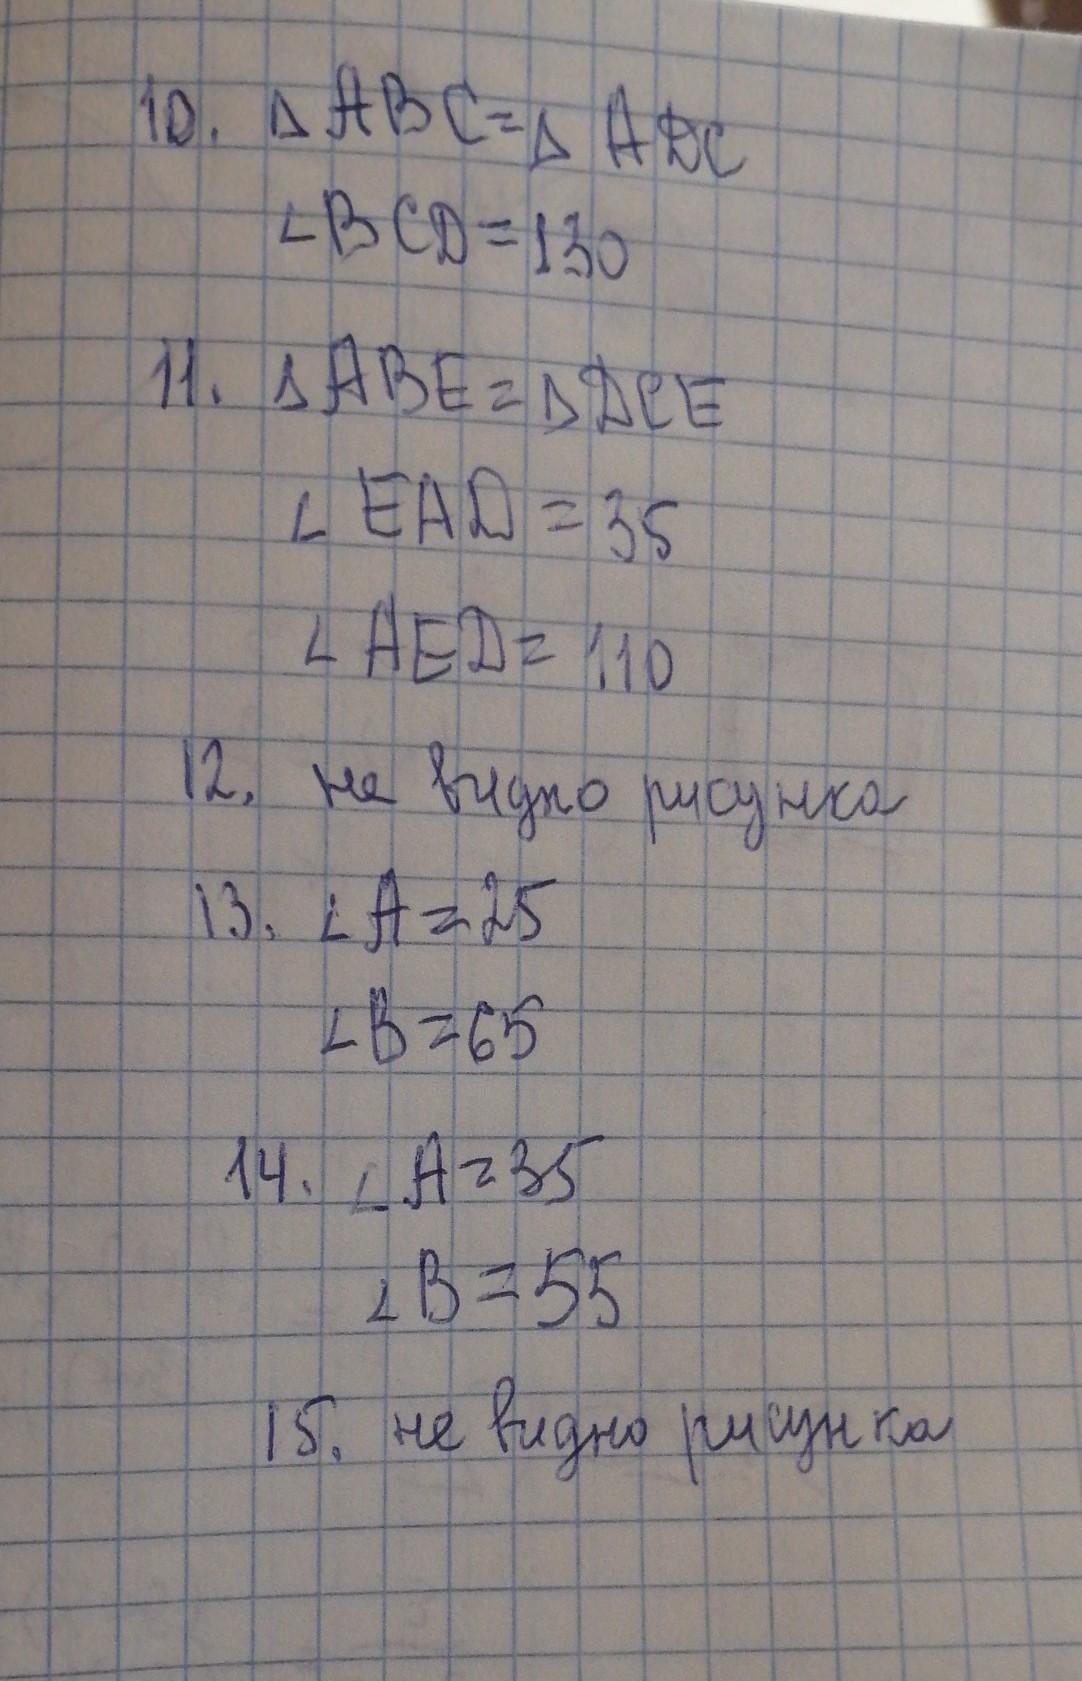 10. ΔABC=ΔADC
∠BCD=130
11. ΔABE=ΔDCE
∠EAD=35
∠AED=110
12. не видно рисунка
13. ∠A=25
∠B=65
14. ∠A=35
∠B=55
15. не видно рисунка